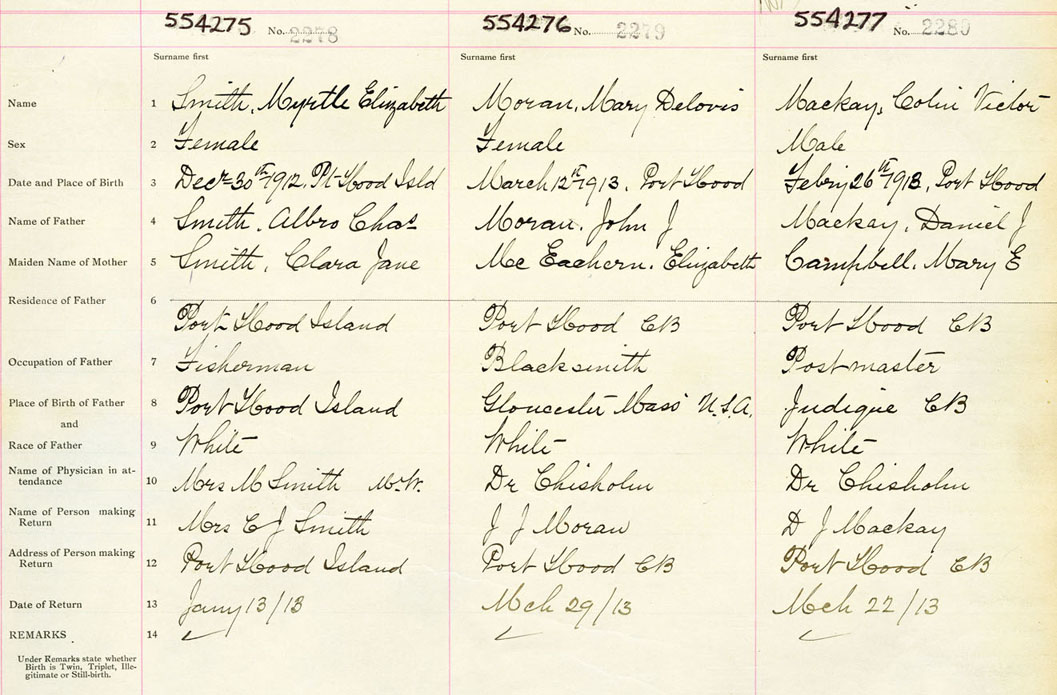 554275 No. 2278 554276 No. 2279 554277 No. 2280
Surname first Surname first Surname first
Name 1 Smith, Myrtle Elizabeth Moran, Mary Delovis Mackay, Colin Victor
Sex 2 Female Female Male
Date and Place of Birth 3 Decr 30th 1912, Pt Hood Isld March 12th 1913, Port Hood Febry 26th 1913, Port Hood
Name of Father 4 Smith, Albro Chas Moran, John J Mackay, Daniel J
Maiden Name of Mother 5 Smith, Clara Jane Mc Eachern, Elizabeth Campbell, Mary E
Residence of Father 6
Port Hood Island Port Hood CB Port Hood CB
Occupation of Father 7 Fisherman Blacksmith Postmaster
Place of Birth of Father 8 Port Hood Island Gloucester Mass U.S.A. Judique CB
and
Race of Father 9 White White White
Name of Physician in at-
tendance 10 Mrs M Smith M.W. Dr Chisholm Dr Chisholm
Name of Person making
Return 11 Mrs C J Smith J J Moran D J Mackay
Address of Person making
Return 12 Port Hood Island Port Hood CB Port Hood CB
Date of Return 13 Jany 13/13 Mch 29/13 Mch 22/13
REMARKS . 14
Under Remarks state whether
Birth is Twin, Triplet, Ille-
gitimate or Still-birth.